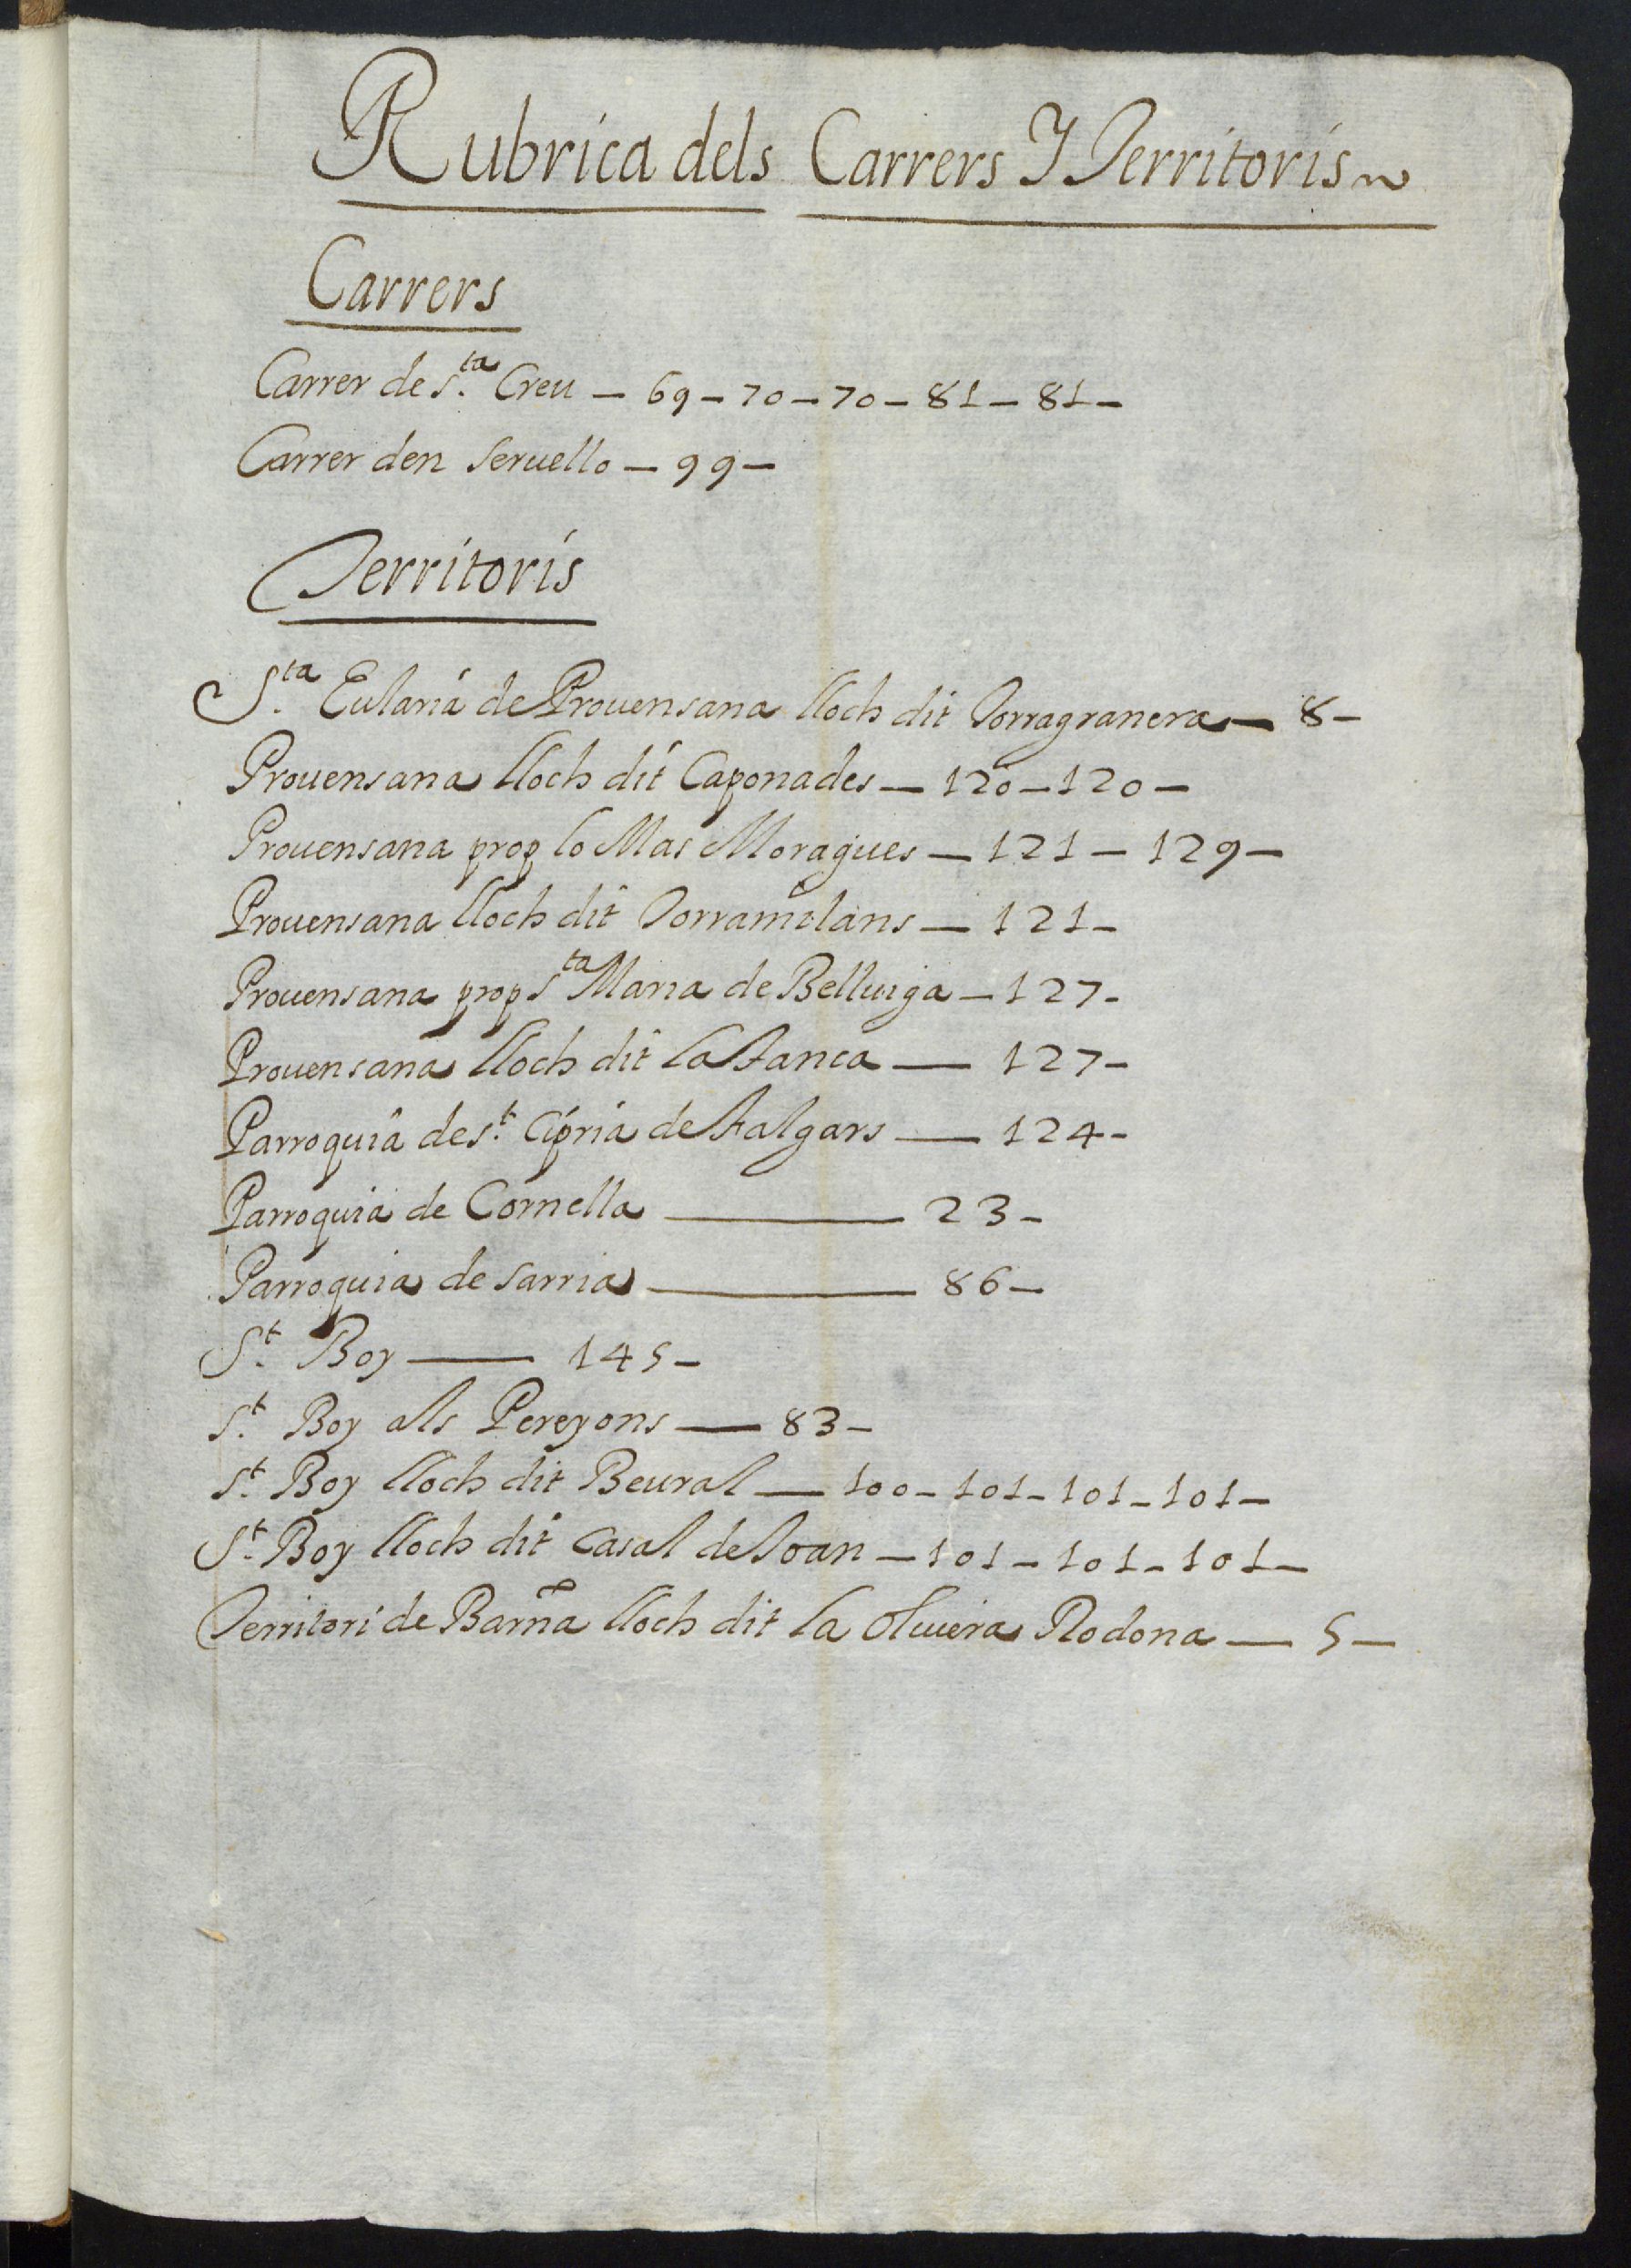 Rubrica dels Carrers Y Territoris
Carrers
Carrer de S.ta Creu — 69 — 70 — 70 — 81 — 81 —
Carrer den Seruello — 99 —
Territoris
S.ta Eularia de Prouensana lloch dit Torragranera — 8 —
Prouensana lloch dit Caponades — 120 — 120 —
Prouensana prop lo Mas Moragues — 121 — 129 —
Prouensana lloch dit Torramilans — 121 —
Prouensana prop S.ta Maria de Belluiga — 127 —
Prouensana lloch dit la Tanca — 127 —
Parroquia de S.t Cipria de Aalgars — 124 —
Parroquia de Cornella — 23 —
Parroquia de Sarria — 86 —
S.t Boy — 145 —
S.t Boy als Pereyons — 83 —
S.t Boy lloch dit Beural — 100 — 101 — 101 — 101 —
S.t Boy lloch dit Casal de Joan — 101 — 101 — 101 —
Territori de Barña lloch dit la Oliuera Rodona — 5 —